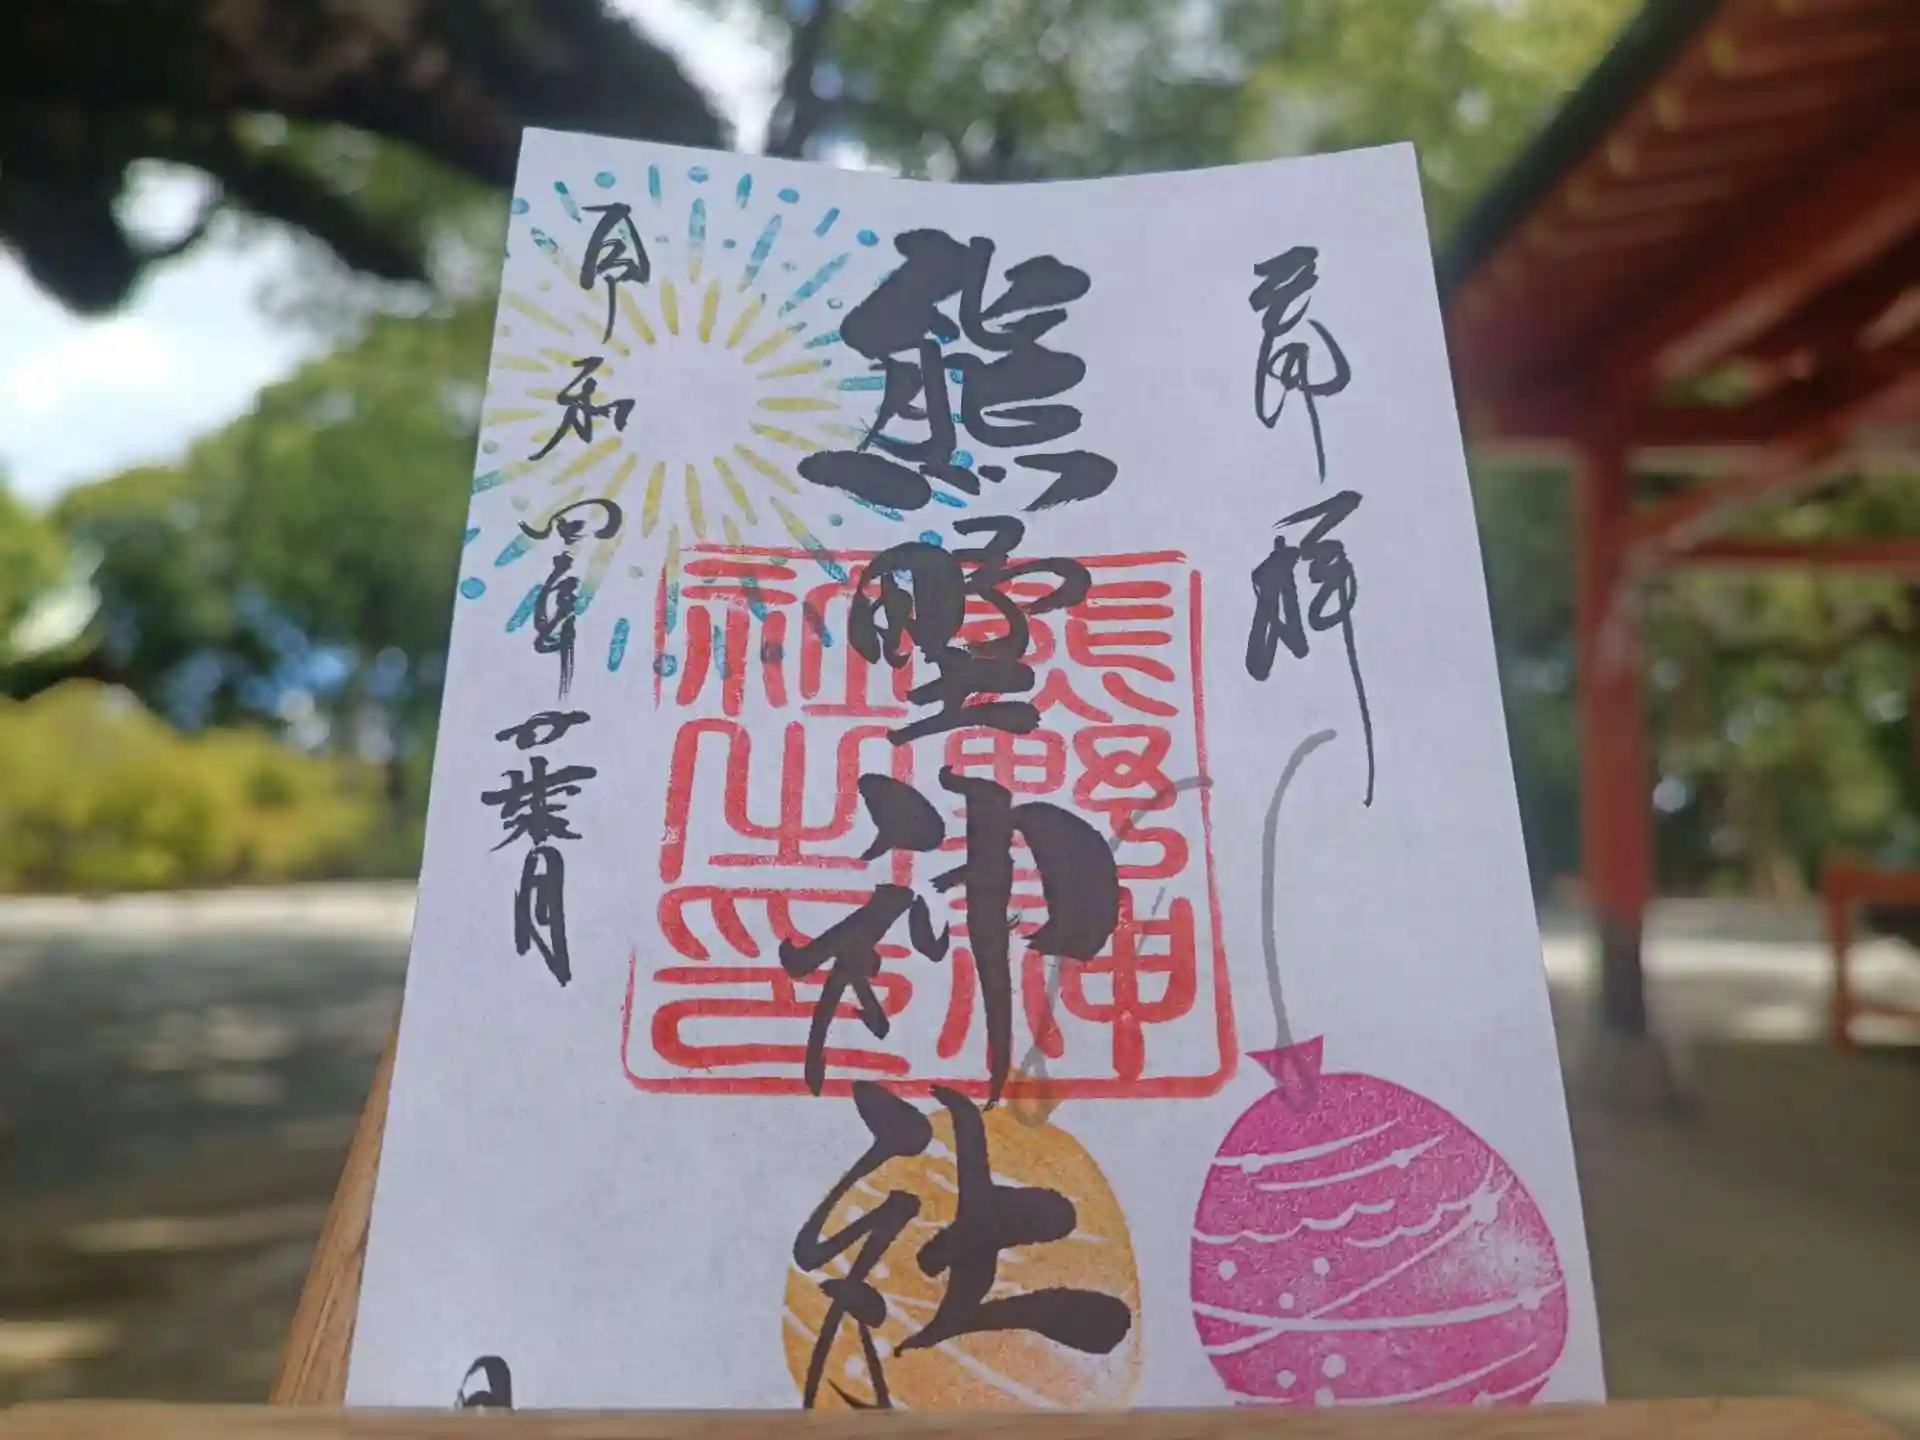 奉拝
熊野神社
熊野神
社之印
令和四年葉月
日